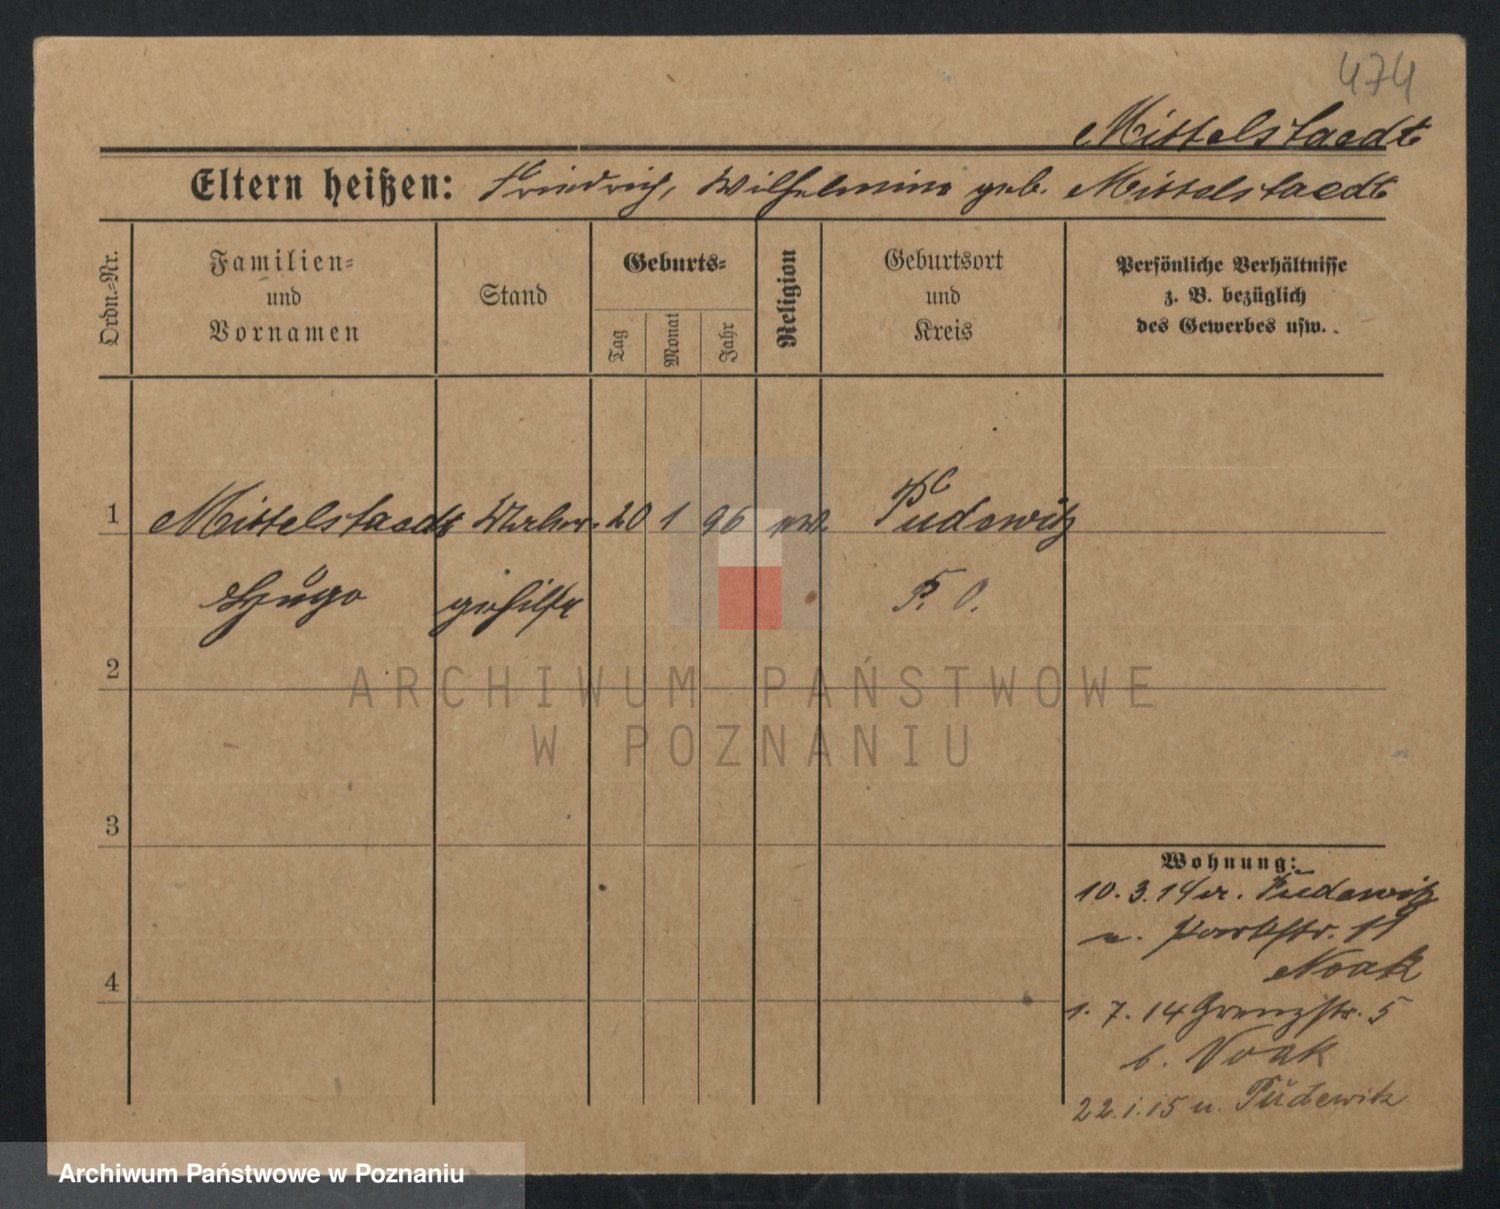 474
Mittelstaedt
Eltern heißen: Friedrich, Wilhelmine geb. Mittelstaedt
Ordn.-Nr.
Familien-
und
Vornamen
Stand
Geburts-
Tag
Monat
Jahr
Religion
Geburtsort
und
Kreis
Persönliche Verhältnisse
z. B. bezüglich
des Gewerbes usw.
1 Mittelstaedt 20 1 96 ev. Pudewitz
Hugo gehilfe P. O.
2
3
4
Wohnung:
10. 3. 14 Pudewitz
n. Parkstr. 11
Noak
1. 7. 14 Grenzstr. 5
b. Noak
22. 1. 15 n. Pudewitz
ARCHIWUM PAŃSTWOWE
W POZNANIU
Archiwum Państwowe w Poznaniu